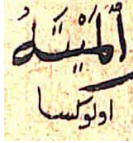 ٱلْمَيْتَةُ
اولوكسا